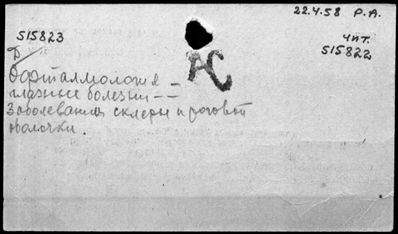 22.4.58 Р.А.
515823
чит.
515822
Б
АС
Офталмология –
глазные болезни ––
Заболевания склеры и роговой
оболочки.